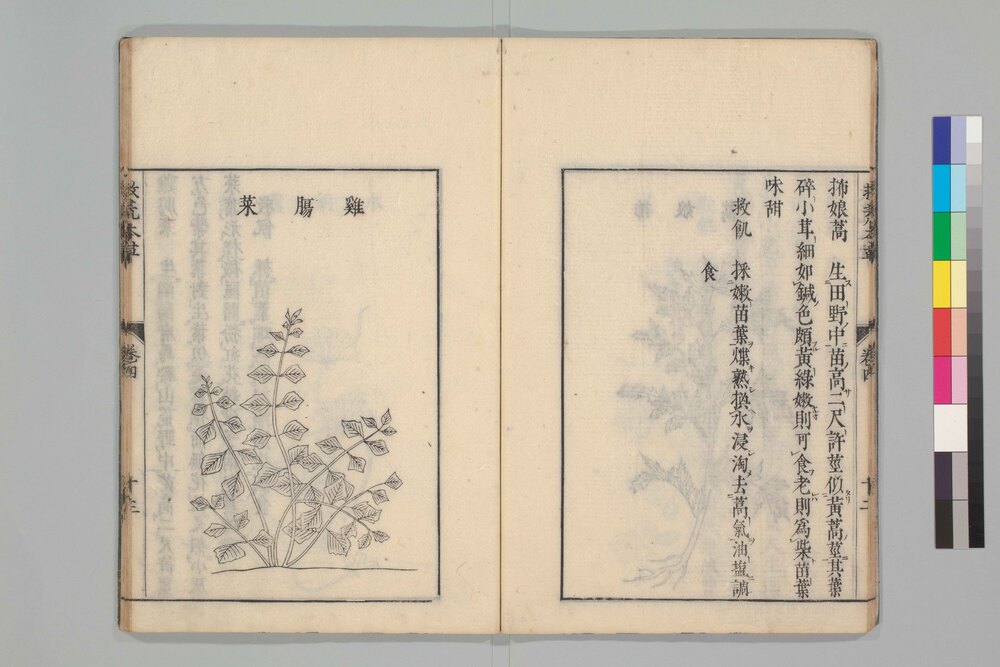 抪娘蒿 生田野中苗高二尺許莖似黃蒿莖其葉
碎小茸細如鍼色頗黃綠嫩則可食老則為柴苗葉
味甜
救飢 採嫩苗葉煠熟換水浸淘去蒿氣油塩調
食
救荒本草 卷四 十二
雞腸菜
救荒本草 卷四 十三